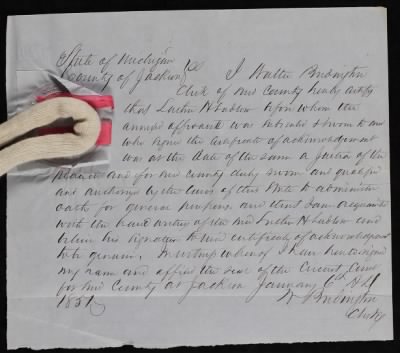 State of Michigan
County of Jackson } ss I Walter Budington
Clerk of said County hereby certify
that Luther H Ludlow before whom the
annexed affidavit was subscribed & sworn to and
who signed the certificate of acknowledgment
was at the date of the same a Justice of the
Peace in and for said County duly sworn and qualified
and authorized by the laws of this State to administer
oaths for general purposes and that I am acquainted
with the hand writing of the said Luther H Ludlow and
believe his signature to said certificate of acknowledgment
to be genuine. In witness whereof I have hereto signed
my name and affixed the seal of the Circuit Court
for said County at Jackson January 6th AD
1851
W Budington
Clerk